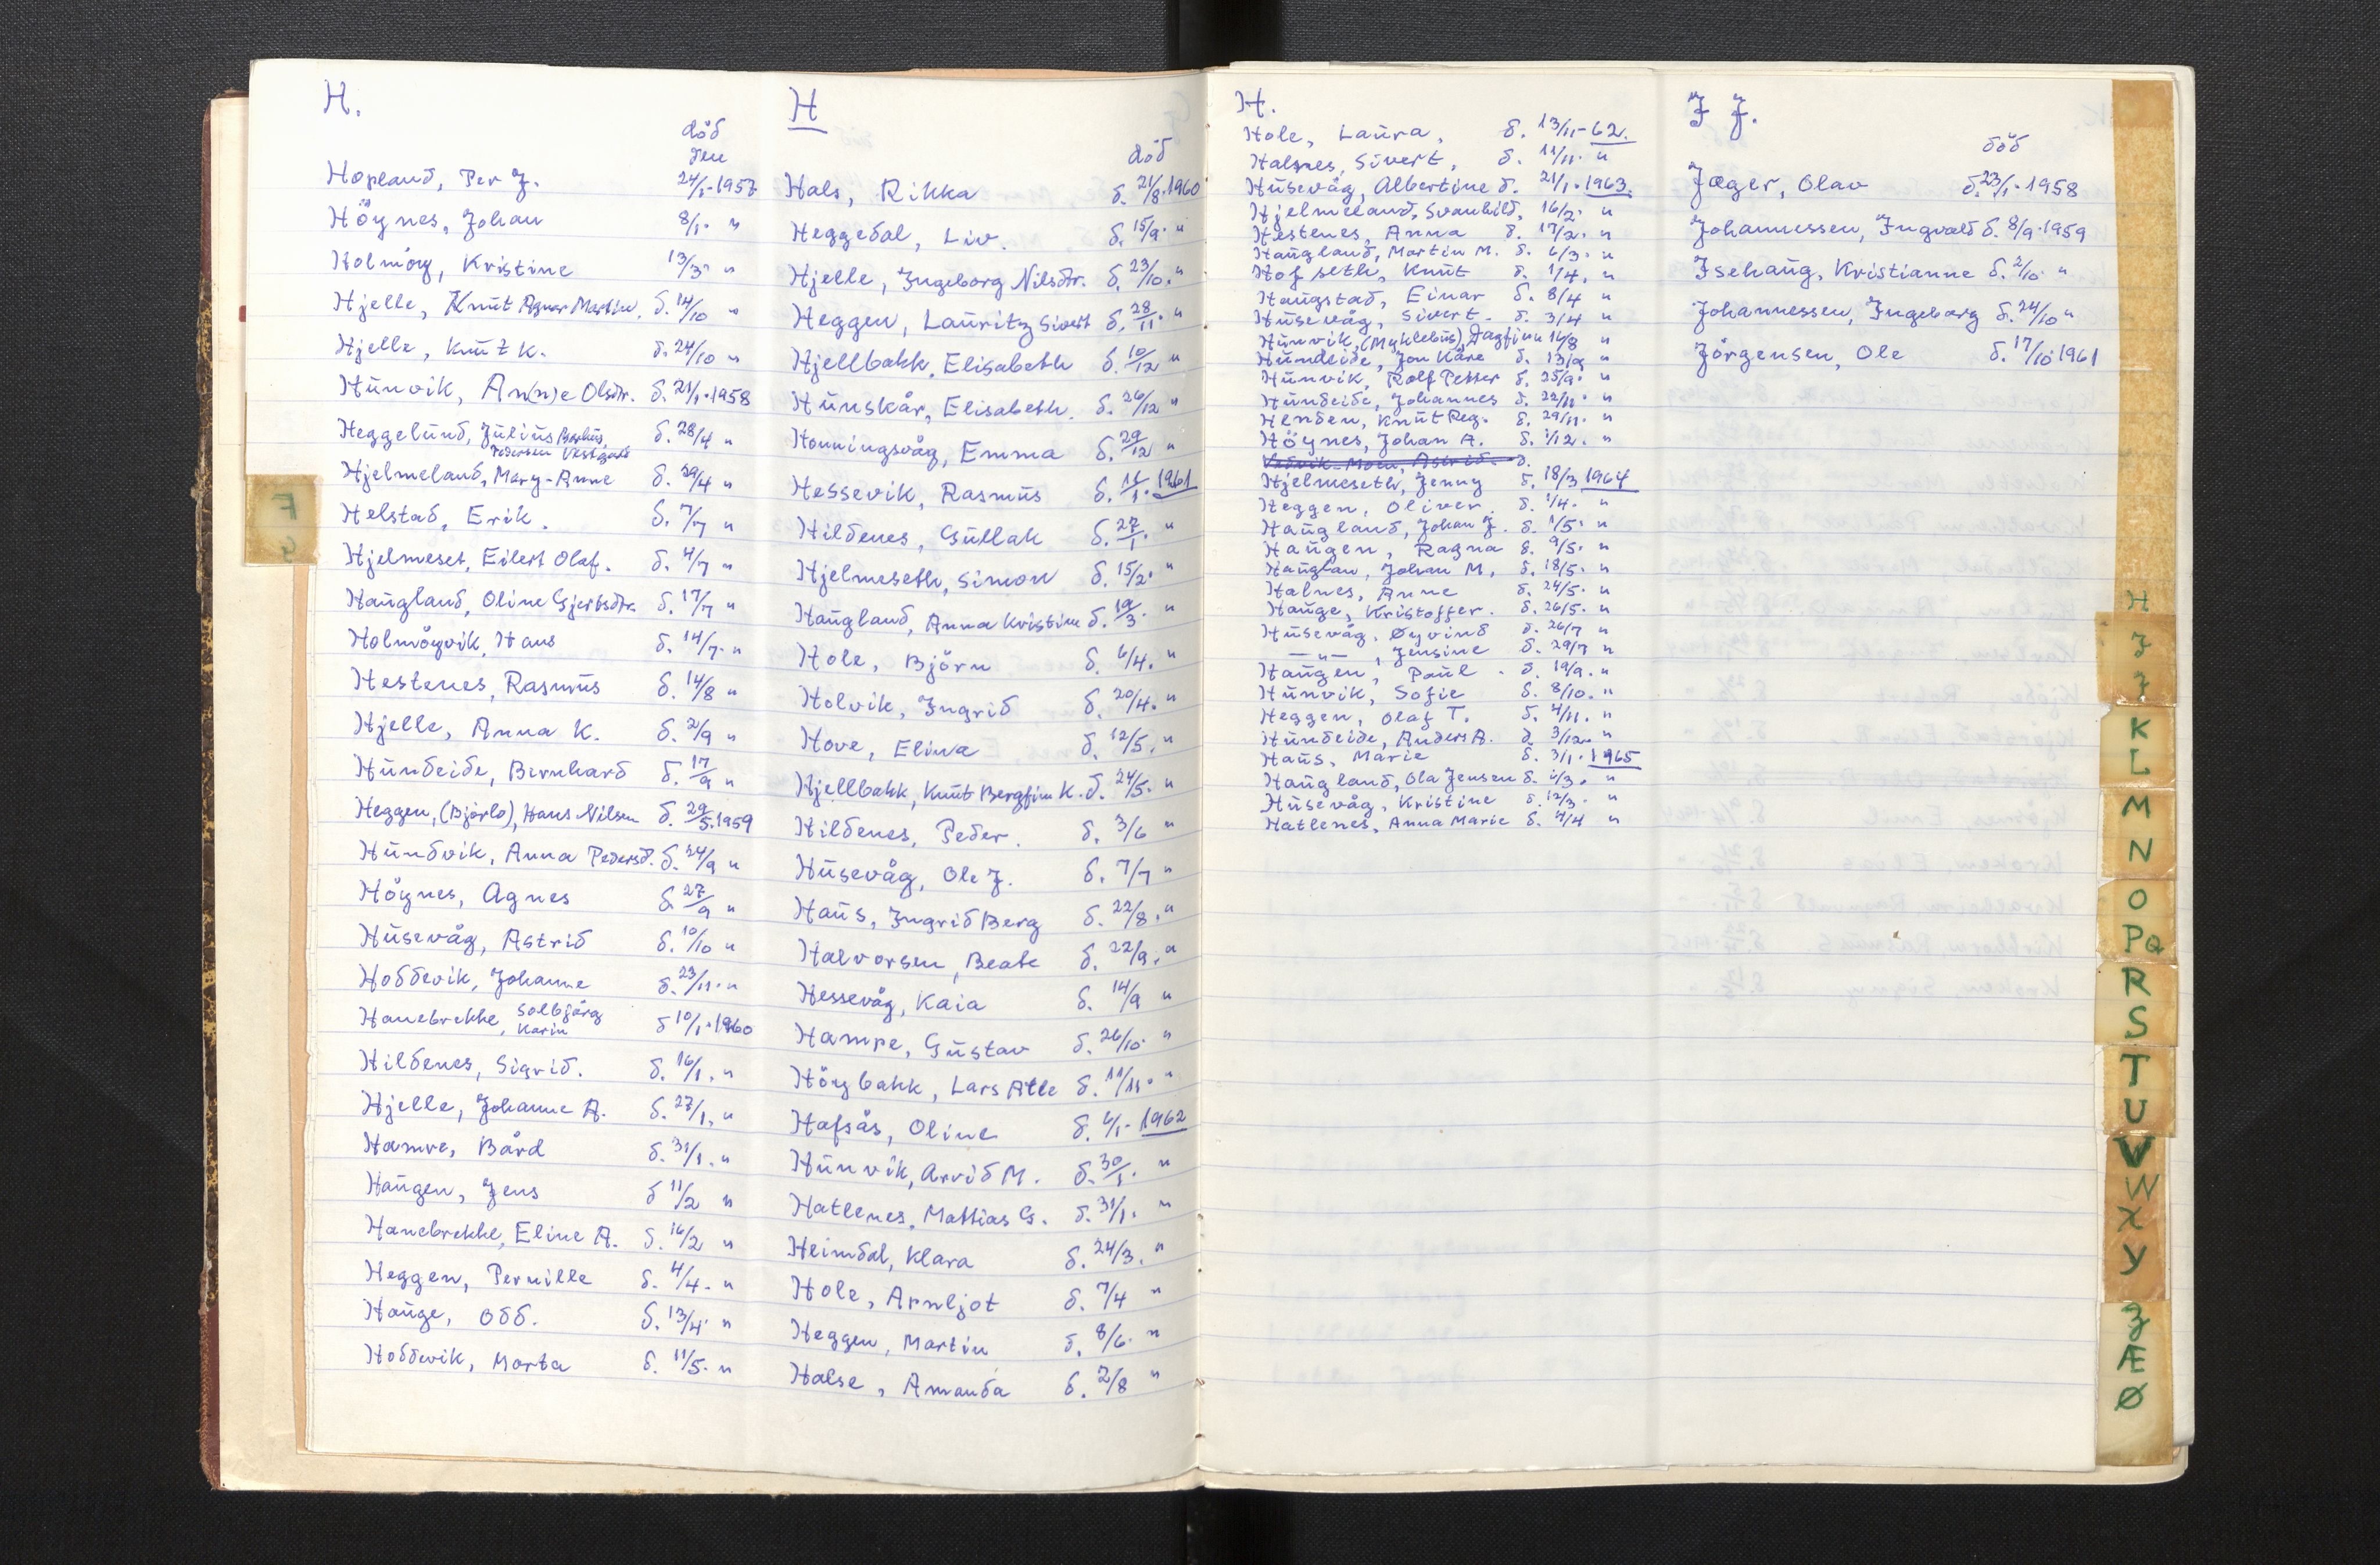 H.
död
den
Hopland, Per J. 24/1-1957
Höynes, Johan 8/1. "
Holmöy, Kristine 13/3. "
Hjelle, Knut Agnar Martin. d. 14/10 "
Hjelle, Knut K. d. 24/10 "
Hunvik, An(n)e Olsdtr. d. 21/1.1958
Heggelund, Julius
Pedersen Vestgate d. 28/4 "
Hjelmeland, Mary-Anne d. 29/4 "
Helstad, Erik. d. 7/7 "
Hjelmeset, Eilert Olaf. d. 4/7 "
Haugland, Oline Gjertsdtr. d. 17/7 "
Holmöyvik, Hans d. 14/7. "
Hestenes, Rasmus d. 14/8 "
Hjelle, Anna K. d. 2/9 "
Hundeide, Bernhard d. 17/9 "
Heggen, (Bjørlo), Hans Nilsen d. 29/5.1959
Hundvik, Anna Pedersd. d. 24/9 "
Höynes, Agnes d. 27/9 "
Husevåg, Astrid d. 10/10 "
Hoddevik, Johanne d. 23/11. "
Hanebrekke, Solbjörg
Karin d 10/1.1960
Hildenes, Sigrid. d. 16/1. "
Hjelle, Johanne A. d. 27/1. "
Hamre, Bård d. 31/1. "
Haugen, Jens d 11/2 "
Hanebrekke, Eline A. d. 16/2 "
Heggen, Pernille d. 4/4. "
Hauge, Odd. d. 13/4. "
Hoddevik, Marta d. 11/5. "
H
död
Hals, Rikka d. 21/8.1960
Heggedal, Liv. d. 15/9. "
Hjelle, Ingeborg Nilsdtr. d. 23/10. "
Heggen, Lauritz Sivert d. 28/11. "
Hjellbakk, Elisabeth d. 10/12 "
Hunskår, Elisabeth. d. 26/12 "
Honningsvåg, Emma d. 29/12 "
Hessevik, Rasmus d. 1. 1961
Hildenes, Gullak d. 27/1. "
Hjelmeseth, Simon d. 15/2. "
Haugland, Anna Kristine d. 19/3. "
Hole, Björn d. 6/4. "
Holvik, Ingrid d. 20/4. "
Hove, Elina d. 12/5. "
Hjellbakk, Knut Bergfinn K. d. 24/5. "
Hildenes, Peder. d. 3/6 "
Husevåg, Ole J. d. 7/7 "
Haus, Ingrid Berg d. 22/8. "
Halvorsen, Beate d. 22/9. "
Hessevåg, Kaia d. 14/9 "
Hampe, Gustav d. 26/10. "
Höybakk, Lars Atle d. 11/11. "
Hafsås, Oline d. 6/1- 1962
Hunvik, Arvid M. d. 30/1. "
Hatlenes, Mattias G. d. 31/1. "
Heimdal, Klara d. 24/3. "
Hole, Arnljot d. 7/4 "
Heggen, Martin d. 8/6. "
Halse, Amanda d. 2/8 "
H.
Hole, Laura, d. 13/11-62.
Halsnes, Sivert, d. 11/11. "
Husevåg, Albertine d. 21/1. 1963.
Hjelmeland, Svanhild, 16/2. "
Hestenes, Anna d. 17/2. "
Haugland, Martin M. d. 6/3. "
Hofseth, Knut d. 1/4. "
Haugstad, Einar d. 8/4 "
Husevåg, Sivert. d. 3/4 "
Hunvik, (Myklebus), Dagfinn 14/8 "
Hundeide, Jon Kåre d. 13/9 "
Hunvik, Rolf Petter d. 25/9. "
Hundeide, Johannes d. 22/11. "
Henden, Knut Reg. d. 29/11. "
Höynes, Johan A. d. 1/12. "
Vedvik-Moen, Astrid. d.
Hjelmeseth, Jenny d. 18/3 1964
Heggen, Oliver. d. 1/4. "
Haugland, Johan J. d. 1/5. "
Haugen, Ragna d. 9/5. "
Hauglan, Johan M. d. 18/5. "
Halnes, Anne d. 24/5. "
Hauge, Kristoffer. d. 26/5. "
Husevåg, Øyvind d. 26/7 "
— " —, Jensine d. 29/7 "
Haugen, Paul. d. 19/9. "
Hunvik, Sofie d. 8/10. "
Heggen, Olaf T. d. 4/11. "
Hundeide, Anders A. d. 3/12. "
Haus, Marie d. 3/1. 1965
Haugland, Ola Jensen d. 2/3. "
Husevåg, Kristine d. 12/3. "
Hatlenes, Anna Marie d. 4/4 "
I J.
död
Jæger, Olav d. 23/1. 1958
Johannessen, Ingvald d. 8/9.1959
Isehaug, Kristianne d. 2/10. "
Johannessen, Ingeborg d. 24/10 "
Jörgensen, Ole d. 17/10.1961
F
G
H
I
J
K
L
M
N
O
PQ
R
S
T
U
V
W
X
Y
Z
Æ
Ø